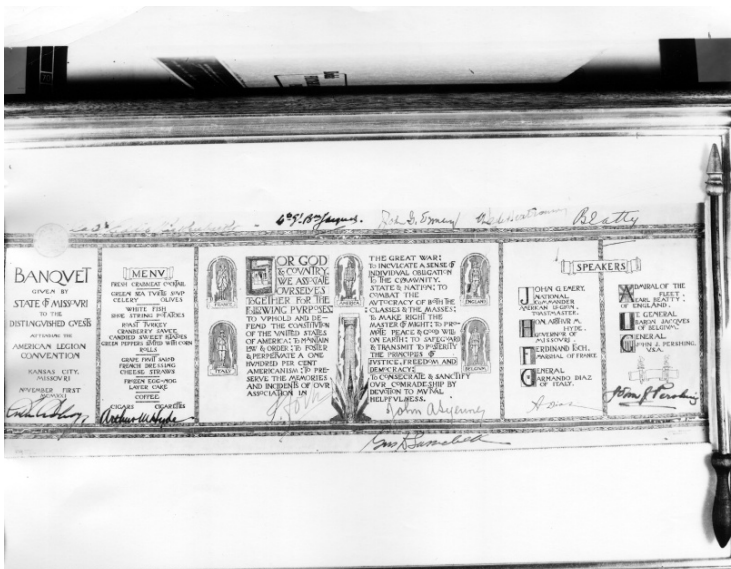 Beatty
BANQVET
GIVEN BY
STATE OF MISSOVRI
TO THE
DISTINGVISHED GVESTS
ATTENDING THE
AMERICAN LEGION
CONVENTION
KANSAS CITY,
MISSOVRI
NOVEMBER FIRST
MENV
FRESH CRABMEAT COCKTAIL
GREEN SEA TVRTLE SOVP
CELERY OLIVES
WHITE FISH
POTATOES
ROAST TVRKEY
CRANBERRY SAVCE
CANDIED SWEET POTATOES
GREEN PEPPERS STVFFED WITH CORN
ROLLS
GRAPE FRVIT SALAD
FRENCH DRESSING
CHEESE STRAWS
FROZEN EGG-NOG
LAYER CAKE
COFFEE
CIGARS CIGARETTES
Arthur M Hyde
FRANCE
ITALY
FOR GOD
& COVNTRY,
WE ASSOCIATE
OVRSELVES
TOGETHER FOR THE
FOLLOWING PVRPOSES:
TO VPHOLD AND DE-
FEND THE CONSTITVTION
OF THE VNITED STATES
OF AMERICA; TO MAINTAIN
LAW & ORDER; TO FOSTER
& PERPETVATE A ONE
HVNDRED PER CENT
AMERICANISM; TO PRE-
SERVE THE MEMORIES
AND INCIDENTS OF OVR
ASSOCIATION IN
AMERICA
THE GREAT WAR;
TO INCVLCATE A SENSE OF
INDIVIDVAL OBLIGATION
TO THE COMMVNITY,
STATE & NATION; TO
COMBAT THE
AVTOCRACY OF BOTH THE
CLASSES & THE MASSES;
TO MAKE RIGHT THE
MASTER OF MIGHT; TO PRO-
MOTE PEACE & GOOD WILL
ON EARTH; TO SAFEGVARD
& TRANSMIT TO POSTERITY
THE PRINCIPLES OF
JVSTICE, FREEDOM AND
DEMOCRACY;
TO CONSECRATE & SANCTIFY
OVR COMRADESHIP BY
DEVOTION TO MVTVAL
HELPFVLNESS.
ENGLAND
BELGIVM
SPEAKERS
JOHN G. EMERY,
NATIONAL
COMMANDER
AMERICAN LEGION,
TOASTMASTER.
HON. ARTHVR M.
HYDE,
GOVERNOR OF
MISSOVRI
FERDINAND FOCH,
MARSHAL OF FRANCE
GENERAL
ARMANDO DIAZ
OF ITALY.
A Diaz
ADMIRAL OF THE
FLEET,
EARL BEATTY,
OF ENGLAND.
LT. GENERAL
BARON JACQVES
OF BELGIVM.
GENERAL
JOHN J. PERSHING,
V.S.A.
John J. Pershing